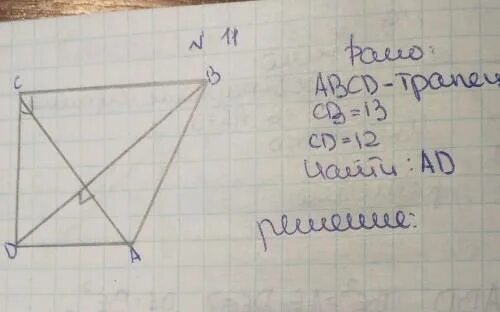 N 11
Дано:
ABCD-трапец
CB=13
CD=12
Найти: AD
решение:
C
B
D
A